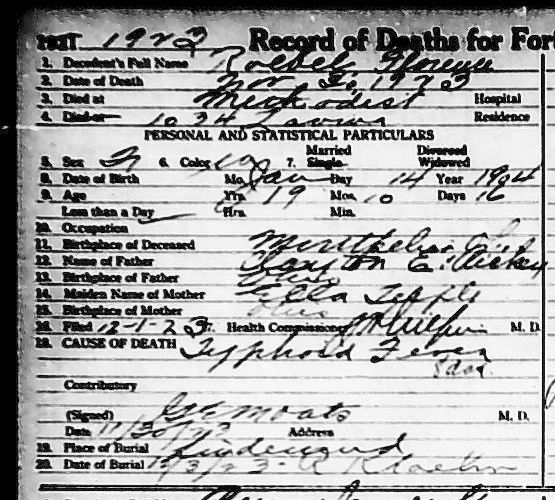 1923 Record of Deaths for For
1. Decedent's Full Name Roebel Florence
2. Date of Death Nov 1923
3. Died at Methodist Hospital
4. Died at 1034 Residence
PERSONAL AND STATISTICAL PARTICULARS
Married Divorced
5. Sex F 6. Color W 7. Single Widowed
8. Date of Birth Mo. Jan Day 14 Year 1904
9. Age Yrs. 19 Mos. 10 Days 16
Less than a Day Hrs. Min.
10. Occupation
11. Birthplace of Deceased
12. Name of Father Clayton E.
13. Birthplace of Father Ohio
14. Maiden Name of Mother Ella
15. Birthplace of Mother Ohio
16. Filed 12-1-23 17. Health Commissioner M. D.
18. CAUSE OF DEATH Typhoid Fever
8 das.
Contributory
(Signed) Moats M. D.
Date 11/30/23 Address
19. Place of Burial Lindenwood
20. Date of Burial 12/3/23 Klaehn